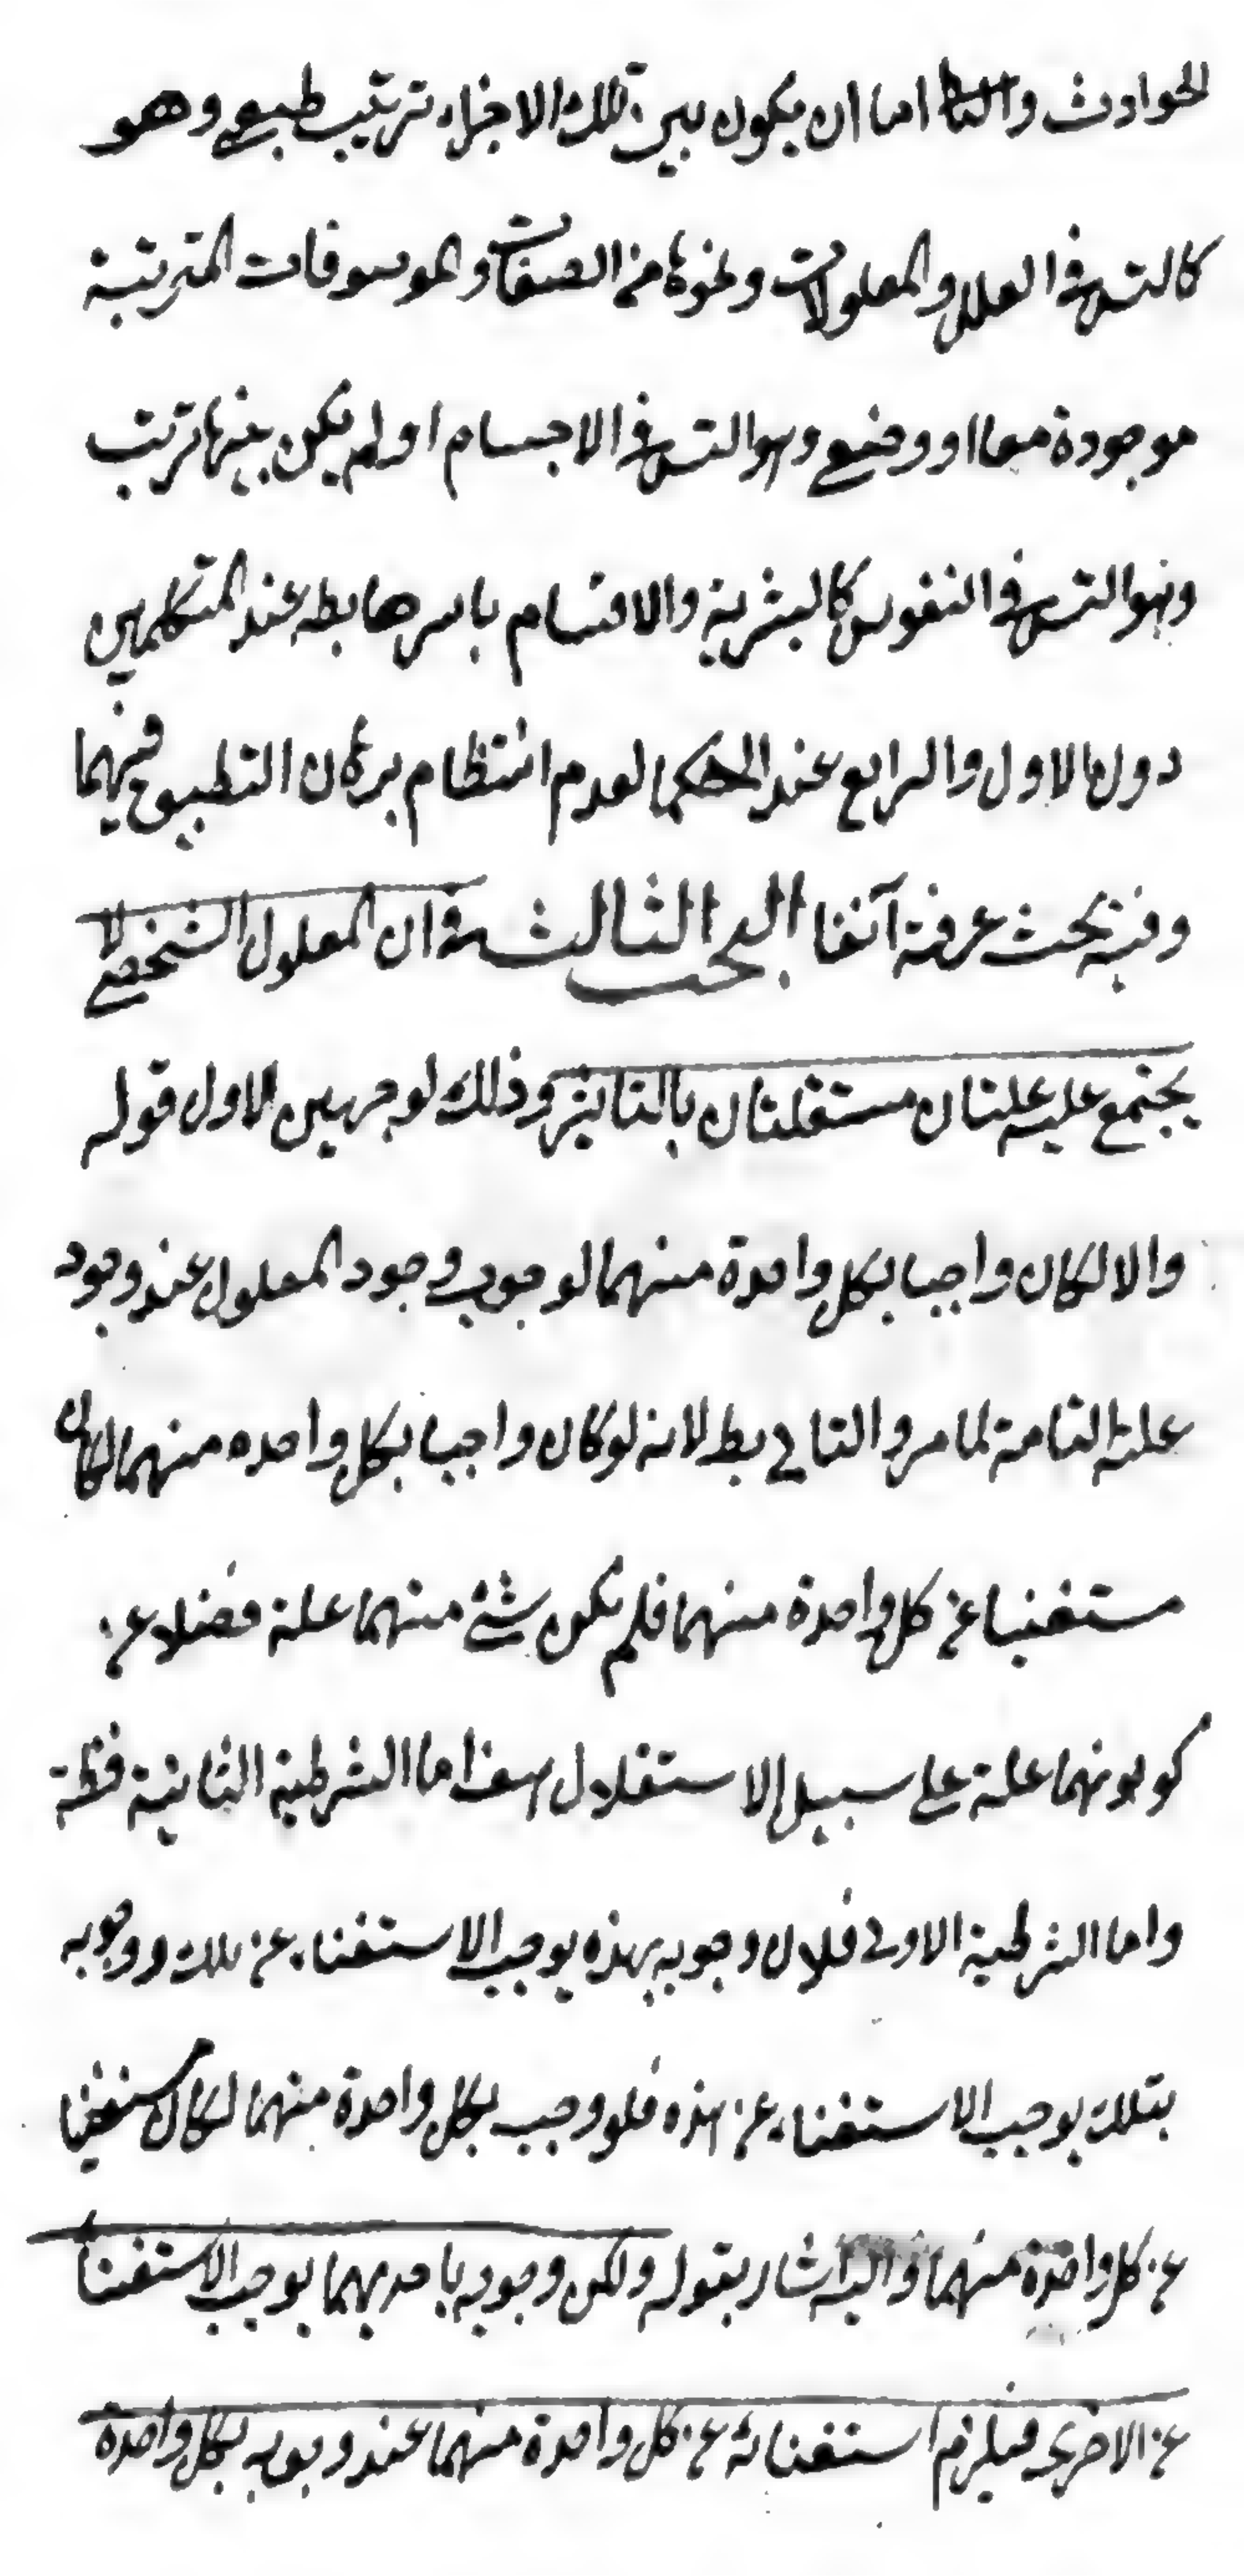 الحوادث والثا اما ان يكون بين تلك الاجزاء ترتيب طبيعي وهو
كالتس في العلل والمعلولات ونحوها من الصفات والموصوفات المترتبة
موجودة معا او وضعي وهو التس في الاجسام او لم يكن بينها ترتب
وهو التس في النفوس كالبشرية والاقسام باسرها بطه عند المتكلمين
دون الاول والرابع عند الحكما لعدم انتظام برهان التطبيق فيهما
وفيه بحث عرفته آنفا البحث الثالث في ان المعلول الشخصي لا
يجتمع عليه علتان مستقلتان بالتاثير وذلك لوجهين الاول قوله
والا لكان واجبا بكل واحدة منهما لوجوب وجود المعلول عند وجود
علته التامة لما مر والتالي بط لانه لو كان واجبا بكل واحده منهما لكان
مستغنيا عن كل واحدة منهما فلم يكن شئ منهما علة فضلا عن
كونهما علة علي سبيل الاستقلال هف اما الشرطية الثانية فظة
واما الشرطية الاولي فلان وجوبه بهذه يوجب الاستغناء عن تلك ووجوبه
بتلك يوجب الاستغناء عن هذه فلو وجب بكل واحدة منهما لكان مستغنيا
عن كل واحدة منهما واليه اشار بقوله ولكن وجوبه باحديهما يوجب الاستغنا
عن الاخري فيلزم استغنائه عن كل واحدة منهما عند وجوبه بكل واحدة